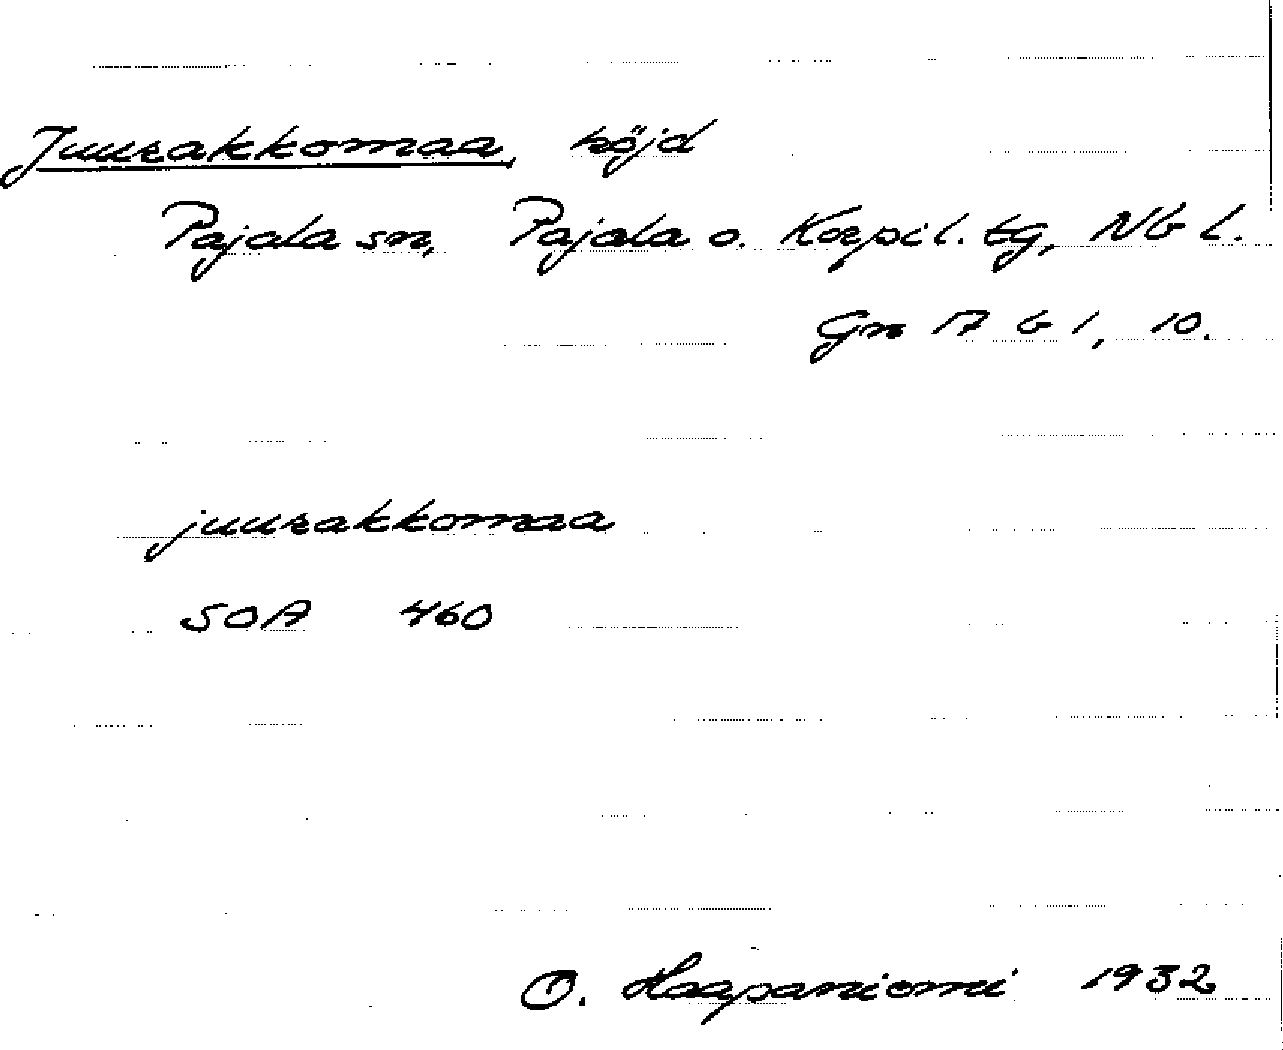 Juurakkomaa, höjd
Pajala sn, Pajala o. Korpil. tg, Nb l.
Gn 17 b 1, 10.
juurakkomaa
SOA 460
O. Haapaniemi 1932